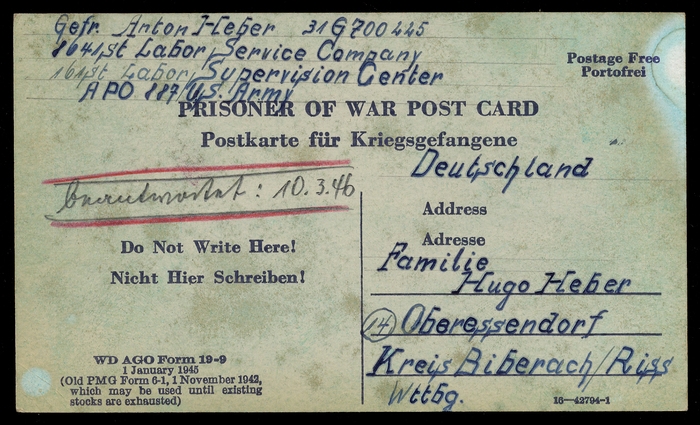 Gefr. Anton Heber 31G700225
8641st Labor Service Company
161st Labor Supervision Center
APO 887 U.S. Army
Postage Free
Portofrei
PRISONER OF WAR POST CARD
Postkarte für Kriegsgefangene
Deutschland
beantwortet: 10.3.46
Address
Adresse
Do Not Write Here!
Nicht Hier Schreiben!
Familie
Hugo Heber
(14) Oberessendorf
Kreis Biberach/Riss
Wttbg.
WD AGO Form 19-9
1 January 1945
(Old PMG Form 6-1, 1 November 1942,
which may be used until existing
stocks are exhausted)
16—42794-1